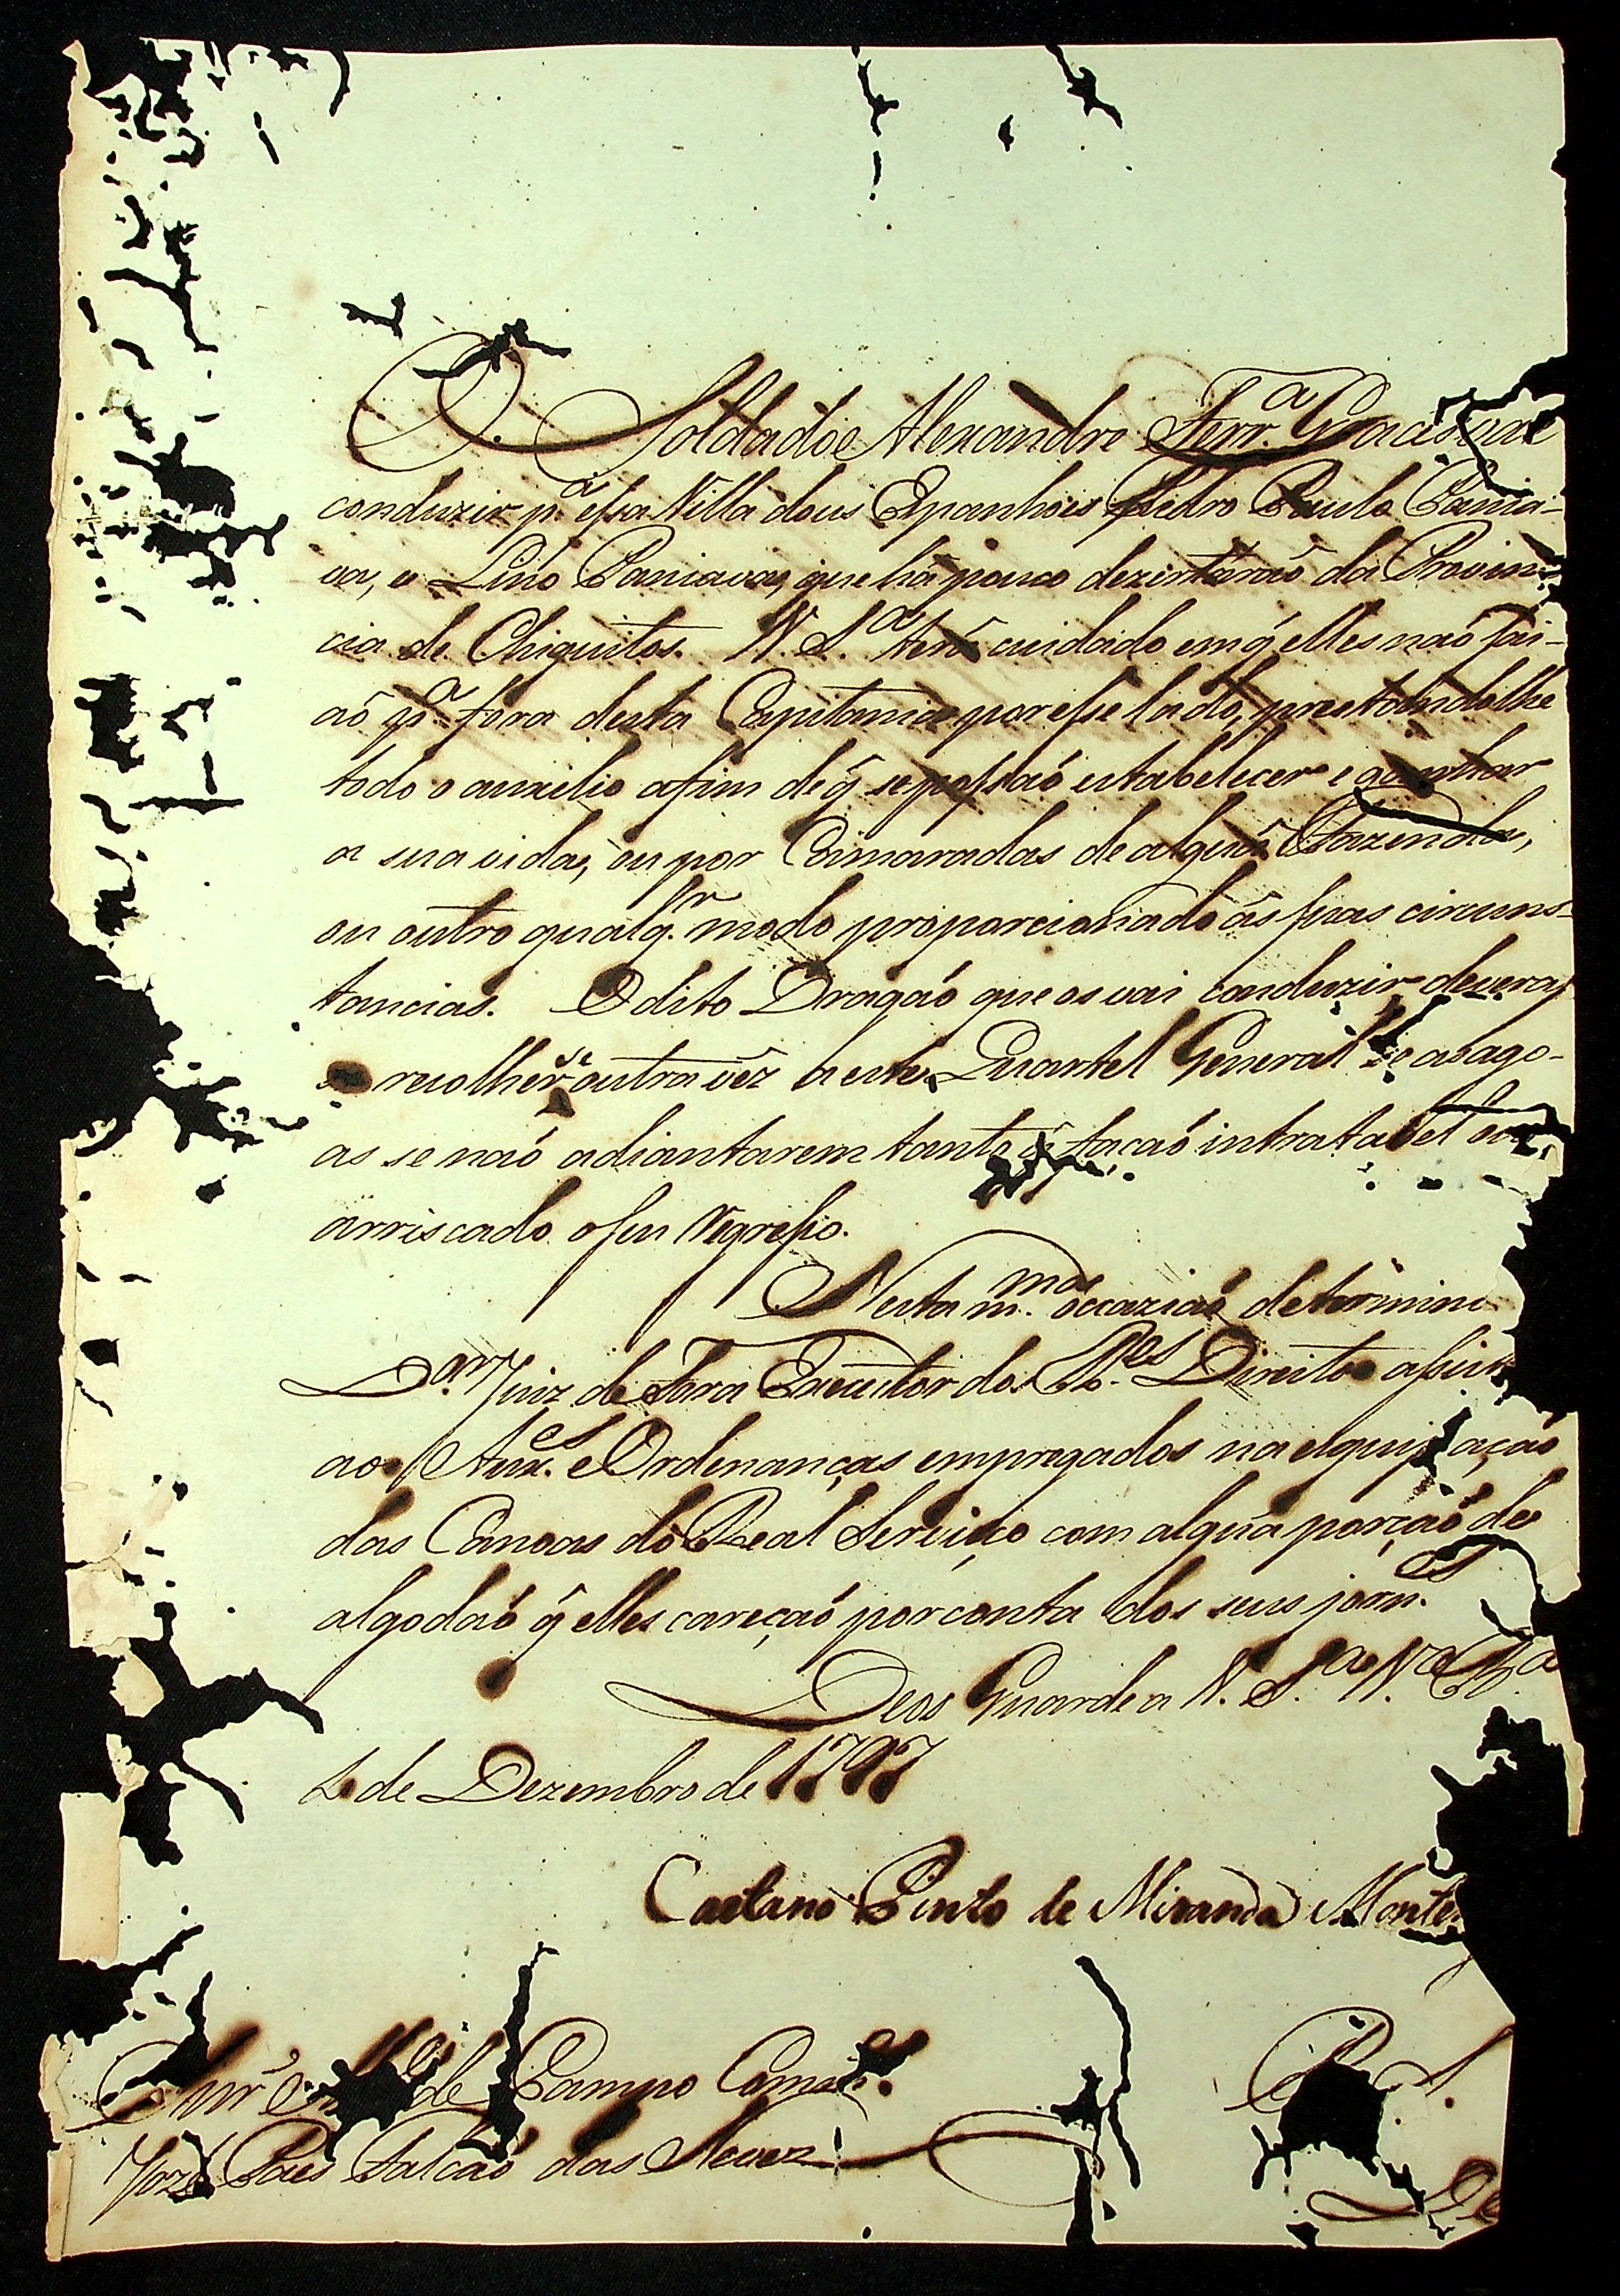 O Soldado Alexandre Ferr.ª Gacis vai
conduzir p.ª essa Villa dous Espanhóis Pedro Paulo Pania-
va, e Lino Paniava, que há pouco dezertárão da Provin-
cia de Chiquitos. V. S.ª terá cuidado em q̃ elles não sai-
aõ p.ª fora desta Capitania por esse lado, prestandolhe
todo o auxilio afim de q̃ se possaõ estabelecer e ganhar
a sua vida, ou por Camaradas de algũa Fazenda,
ou outro qualq.r modo proporcionado ás suas circuns-
tancias. O dito Dragaõ que os vai conduzir deverá
recolher-se outra vêz a este Quartel General se as ago-
as se naõ adiantarem tanto q̃ façaõ intratavel ou
arriscado o seu regresso.
Nesta m.ma occaziaõ determino
D.or Juiz de Fora Executor dos R.es Direitos assista
aos Aux.es e Ordenanças empregados na esquipaçaõ
das Canoas do Real Serviço com algũa porçaõ de
algodaõ q̃ elles careçaõ por conta dos seus jorn.es
Deos Guarde a V. S.ª V.ª B.ª
de Dezembro de 1797
Caetano Pinto de Miranda Monte
Snr̃ de Campo Com.e
Joze Paes Falcaõ das Neves
P. S.
De